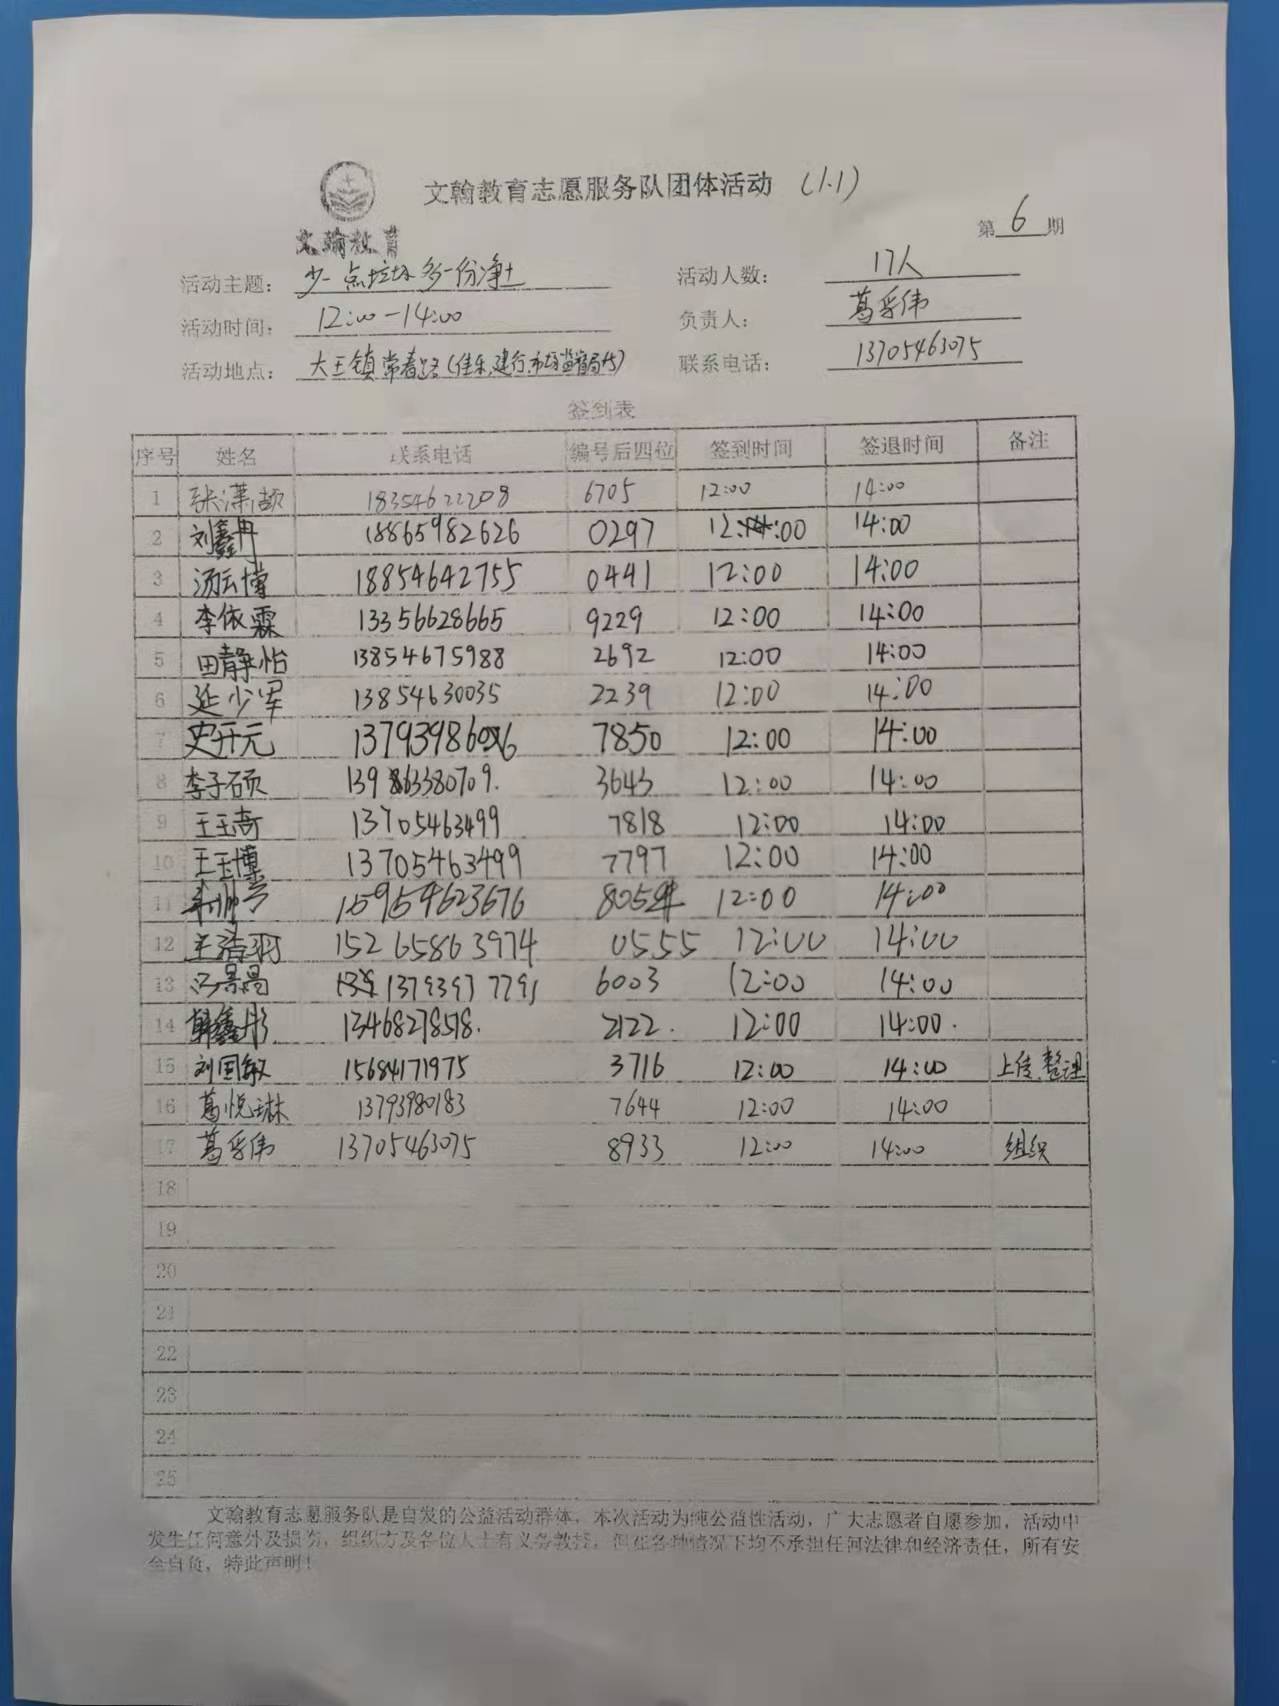 文翰教育志愿服务队团体活动 (1.1)
文翰教育
第 6 期
活动主题： 少一点垃圾多一份净土 活动人数： 17人
活动时间： 12:00-14:00 负责人： 葛孚伟
活动地点： 大王镇常春路(佳乐,建行,市场监督局 联系电话： 13705463075
签到表
序号 姓名 联系电话 编号后四位 签到时间 签退时间 备注
1 张潇 18354622208 6705 12:00 14:00
2 刘鑫冉 18865982626 0297 12:00 14:00
3 汤云博 18854642755 0441 12:00 14:00
4 李依霖 13356628665 9229 12:00 14:00
5 田静怡 13854675988 2692 12:00 14:00
6 延少军 13854630035 2239 12:00 14:00
7 史开元 137939860 7850 12:00 14:00
8 李子硕 13963380709. 3643 12:00 14:00
9 王玉奇 13705463499 7818 12:00 14:00
10 王玉博 13705463499 7797 12:00 14:00
11 15954623676 805 12:00 14:00
12 王浩羽 15265863974 0555 12:00 14:00
13 冯景昌 13793977791 6003 12:00 14:00
14 韩鑫彤 13468278518. 2122. 12:00 14:00.
15 刘国敏 15684171975 3716 12:00 14:00 上传、整理
16 葛悦琳 13793980183 7644 12:00 14:00
17 葛孚伟 13705463075 8933 12:00 14:00 组织
18
19
20
21
22
23
24
25
文翰教育志愿服务队是自发的公益活动群体，本次活动为纯公益性活动，广大志愿者自愿参加，活动中
发生任何意外及损伤，组织方及各位人士有义务救援，但在各种情况下均不承担任何法律和经济责任，所有安
全自负，特此声明！